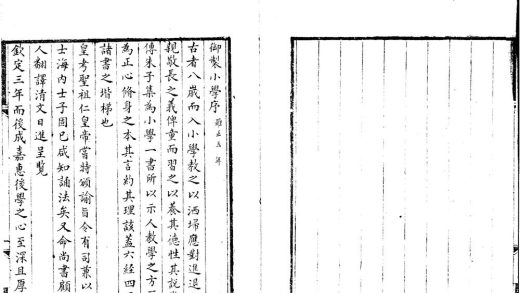 御製小學序 雍正五年
古者八歲而入小學教之以洒埽應對進退
親敬長之義俾童而習之以養其德性其說
傳朱子集為小學一書所以示人教學之方
為正心脩身之本其言約其理該蓋六經四
諸書之堦梯也
皇考聖祖仁皇帝嘗特頒諭旨令有司兼以
士海內士子固已咸知誦法矣又命尚書顧
人翻譯清文日進呈覽
欽定三年而後成嘉惠後學之心至深且厚